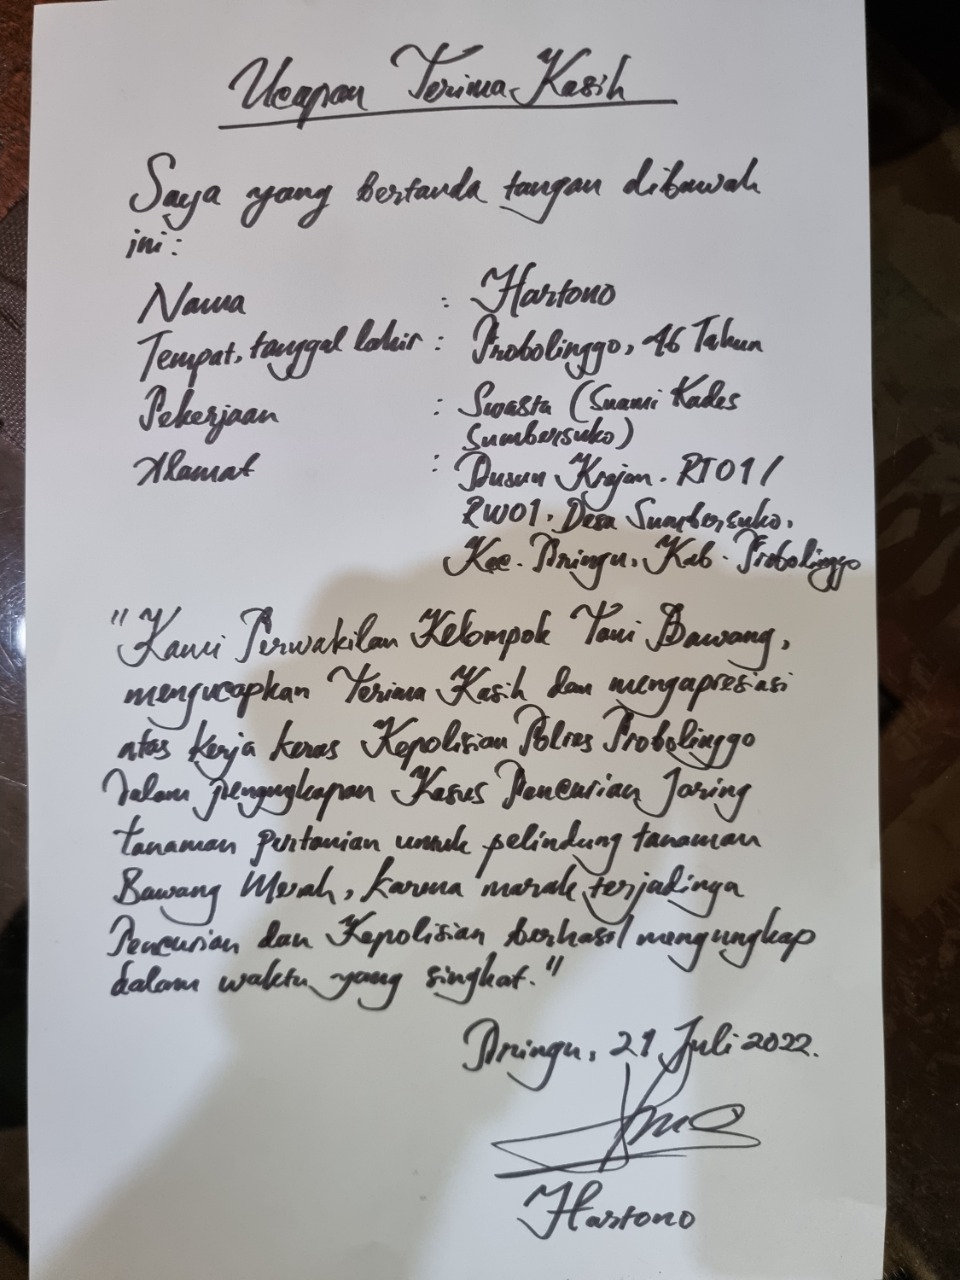 Ucapan Terima Kasih
Saya yang bertanda tangan dibawah
ini :
Nama : Hartono
Tempat, tanggal lahir : Probolinggo, 46 Tahun
Pekerjaan : Swasta (Suami Kades
Sumbersuko)
Alamat : Dusun Krajan. RT01/
RW01. Desa Sumbersuko.
Kec. Dringu. Kab. Probolinggo
"Kami Perwakilan Kelompok Tani Bawang,
mengucapkan Terima Kasih dan mengapresiasi
atas kerja keras Kepolisian Polres Probolinggo
dalam pengungkapan Kasus Pencurian Jaring
tanaman pertanian untuk pelindung tanaman
Bawang Merah, karena marak terjadinya
Pencurian dan Kepolisian berhasil mengungkap
dalam waktu yang singkat."
Dringu, 21 Juli 2022.
Hartono